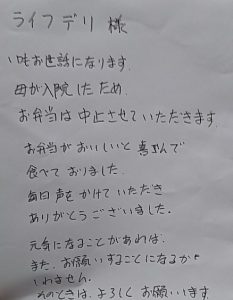 ライフデリ 様
いつもお世話になります。
母が入院したため、
お弁当は中止させていただきます。
お弁当がおいしいと喜んで
食べておりました。
毎日声をかけていただき
ありがとうございました。
元気になることがあれば、
また、お願いすることになるかも
しれません。
そのときは、よろしくお願いします